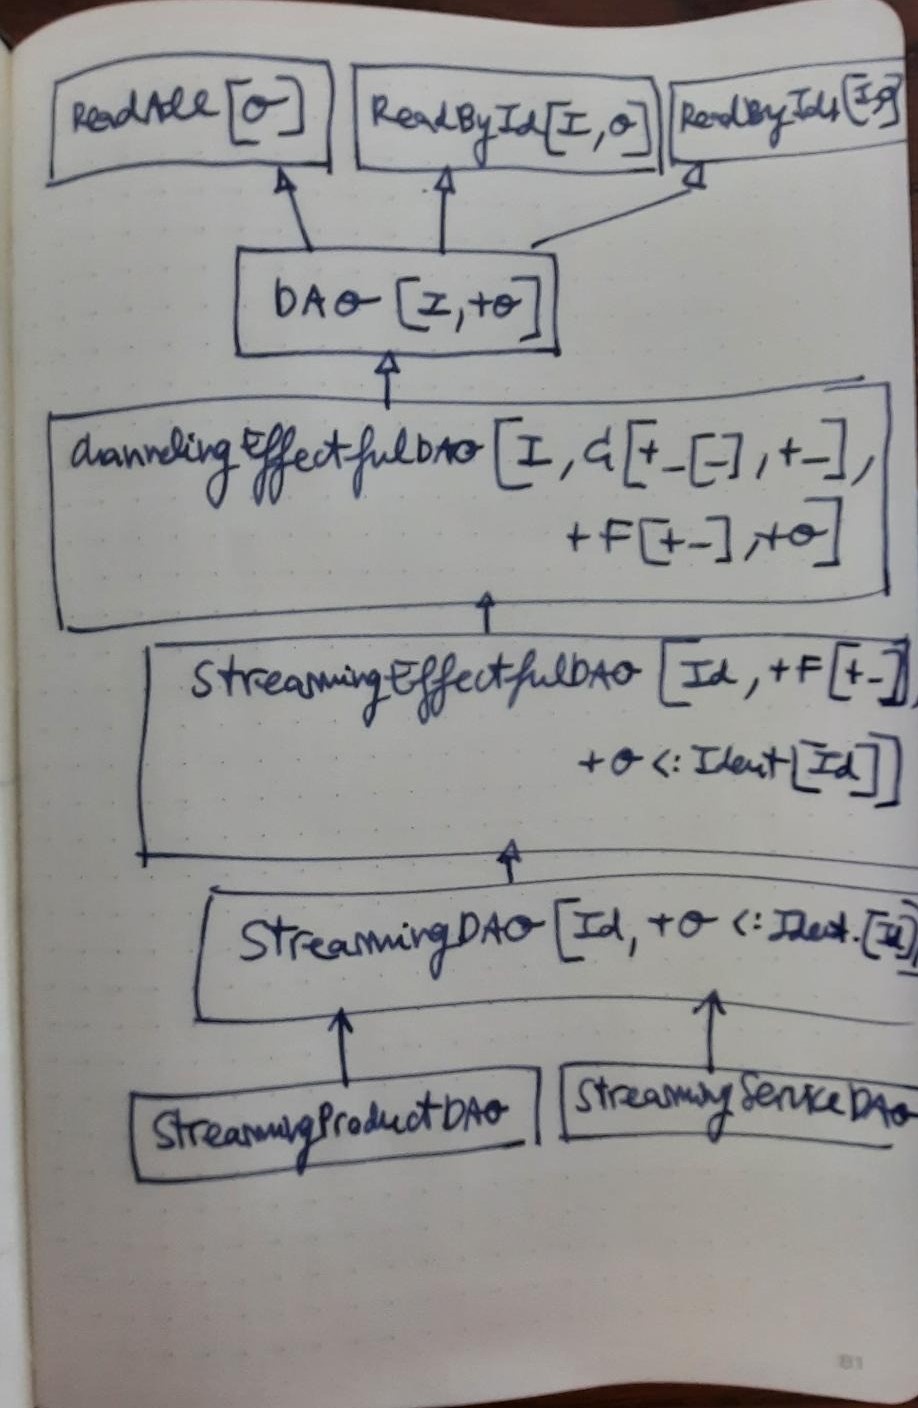 ReadAll [O]
ReadById [I, O]
ReadByIds [I, O]
DAO [I, +O]
EffectfulDAO [I, G[+_[_], +_],
+F[+_], +O]
StreamingEffectfulDAO [Id, +F[+_],
+O <: Ident[Id]]
StreamingDAO [Id, +O <: Ident.[Id]
StreamingProductDAO
StreamingServiceDAO
81